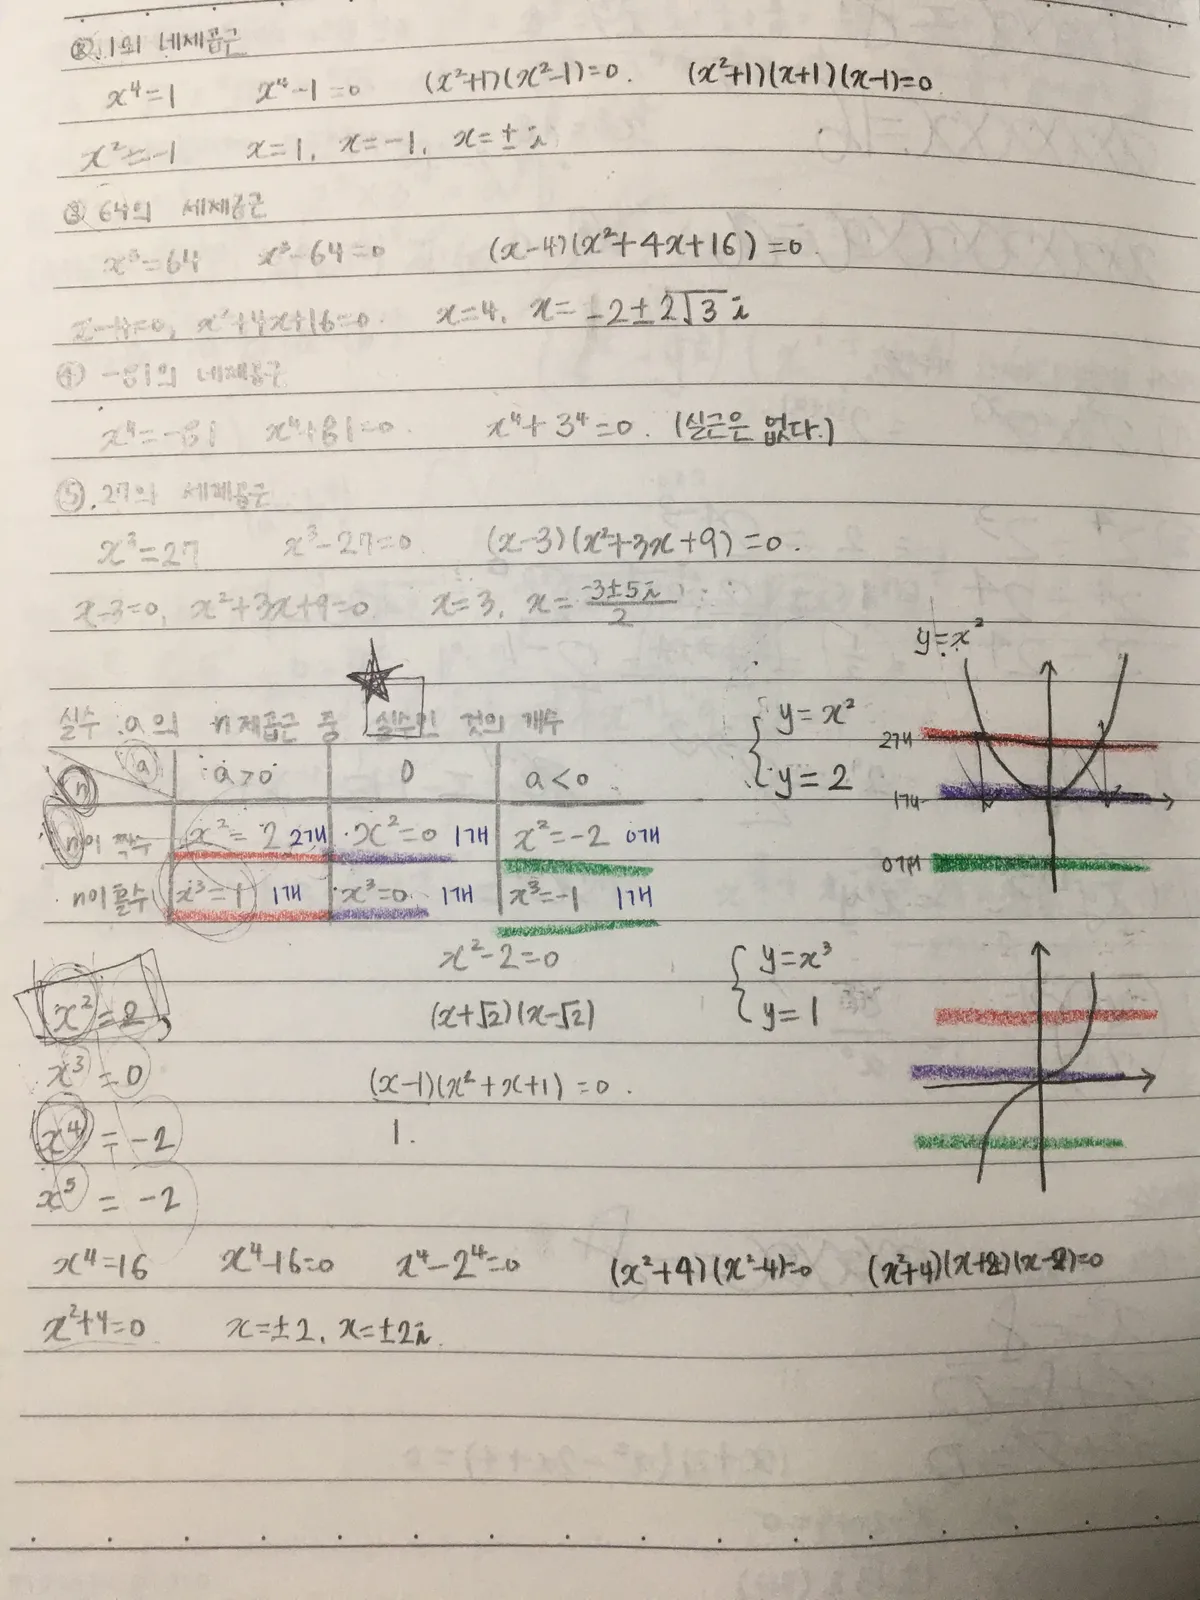 ②. 1의 네제곱근
x⁴=1 x⁴-1=0 (x²+1)(x²-1)=0. (x²+1)(x+1)(x-1)=0
x²=-1 x=1, x=-1, x=±i
③ 64의 세제곱근
x³=64 x³-64=0 (x-4)(x²+4x+16)=0.
x-4=0, x²+4x+16=0. x=4, x=-2±2√3 i
④ -81의 네제곱근
x⁴=-81 x⁴+81=0. x⁴+3⁴=0. (실근은 없다.)
⑤. 27의 세제곱근
x³=27 x³-27=0 (x-3)(x²+3x+9)=0.
x-3=0, x²+3x+9=0. x=3, x=(-3±5i)/2
y=x²
실수 a의 n제곱근 중 실수인 것의 개수
y=x²
y=2
2개
1개
0개
n a a>0 0 a<0
n이 짝수 x²=2 2개 x²=0 1개 x²=-2 0개
n이 홀수 x³=1 1개 x³=0 1개 x³=-1 1개
x²-2=0
(x+√2)(x-√2)
y=x³
y=1
x²=2
x³=0
(x-1)(x²+x+1)=0.
x⁴=-2
1.
x⁵=-2
x⁴=16 x⁴-16=0 x⁴-2⁴=0 (x²+4)(x²-4)=0 (x²+4)(x+2)(x-2)=0
x²+4=0 x=±2, x=±2i.